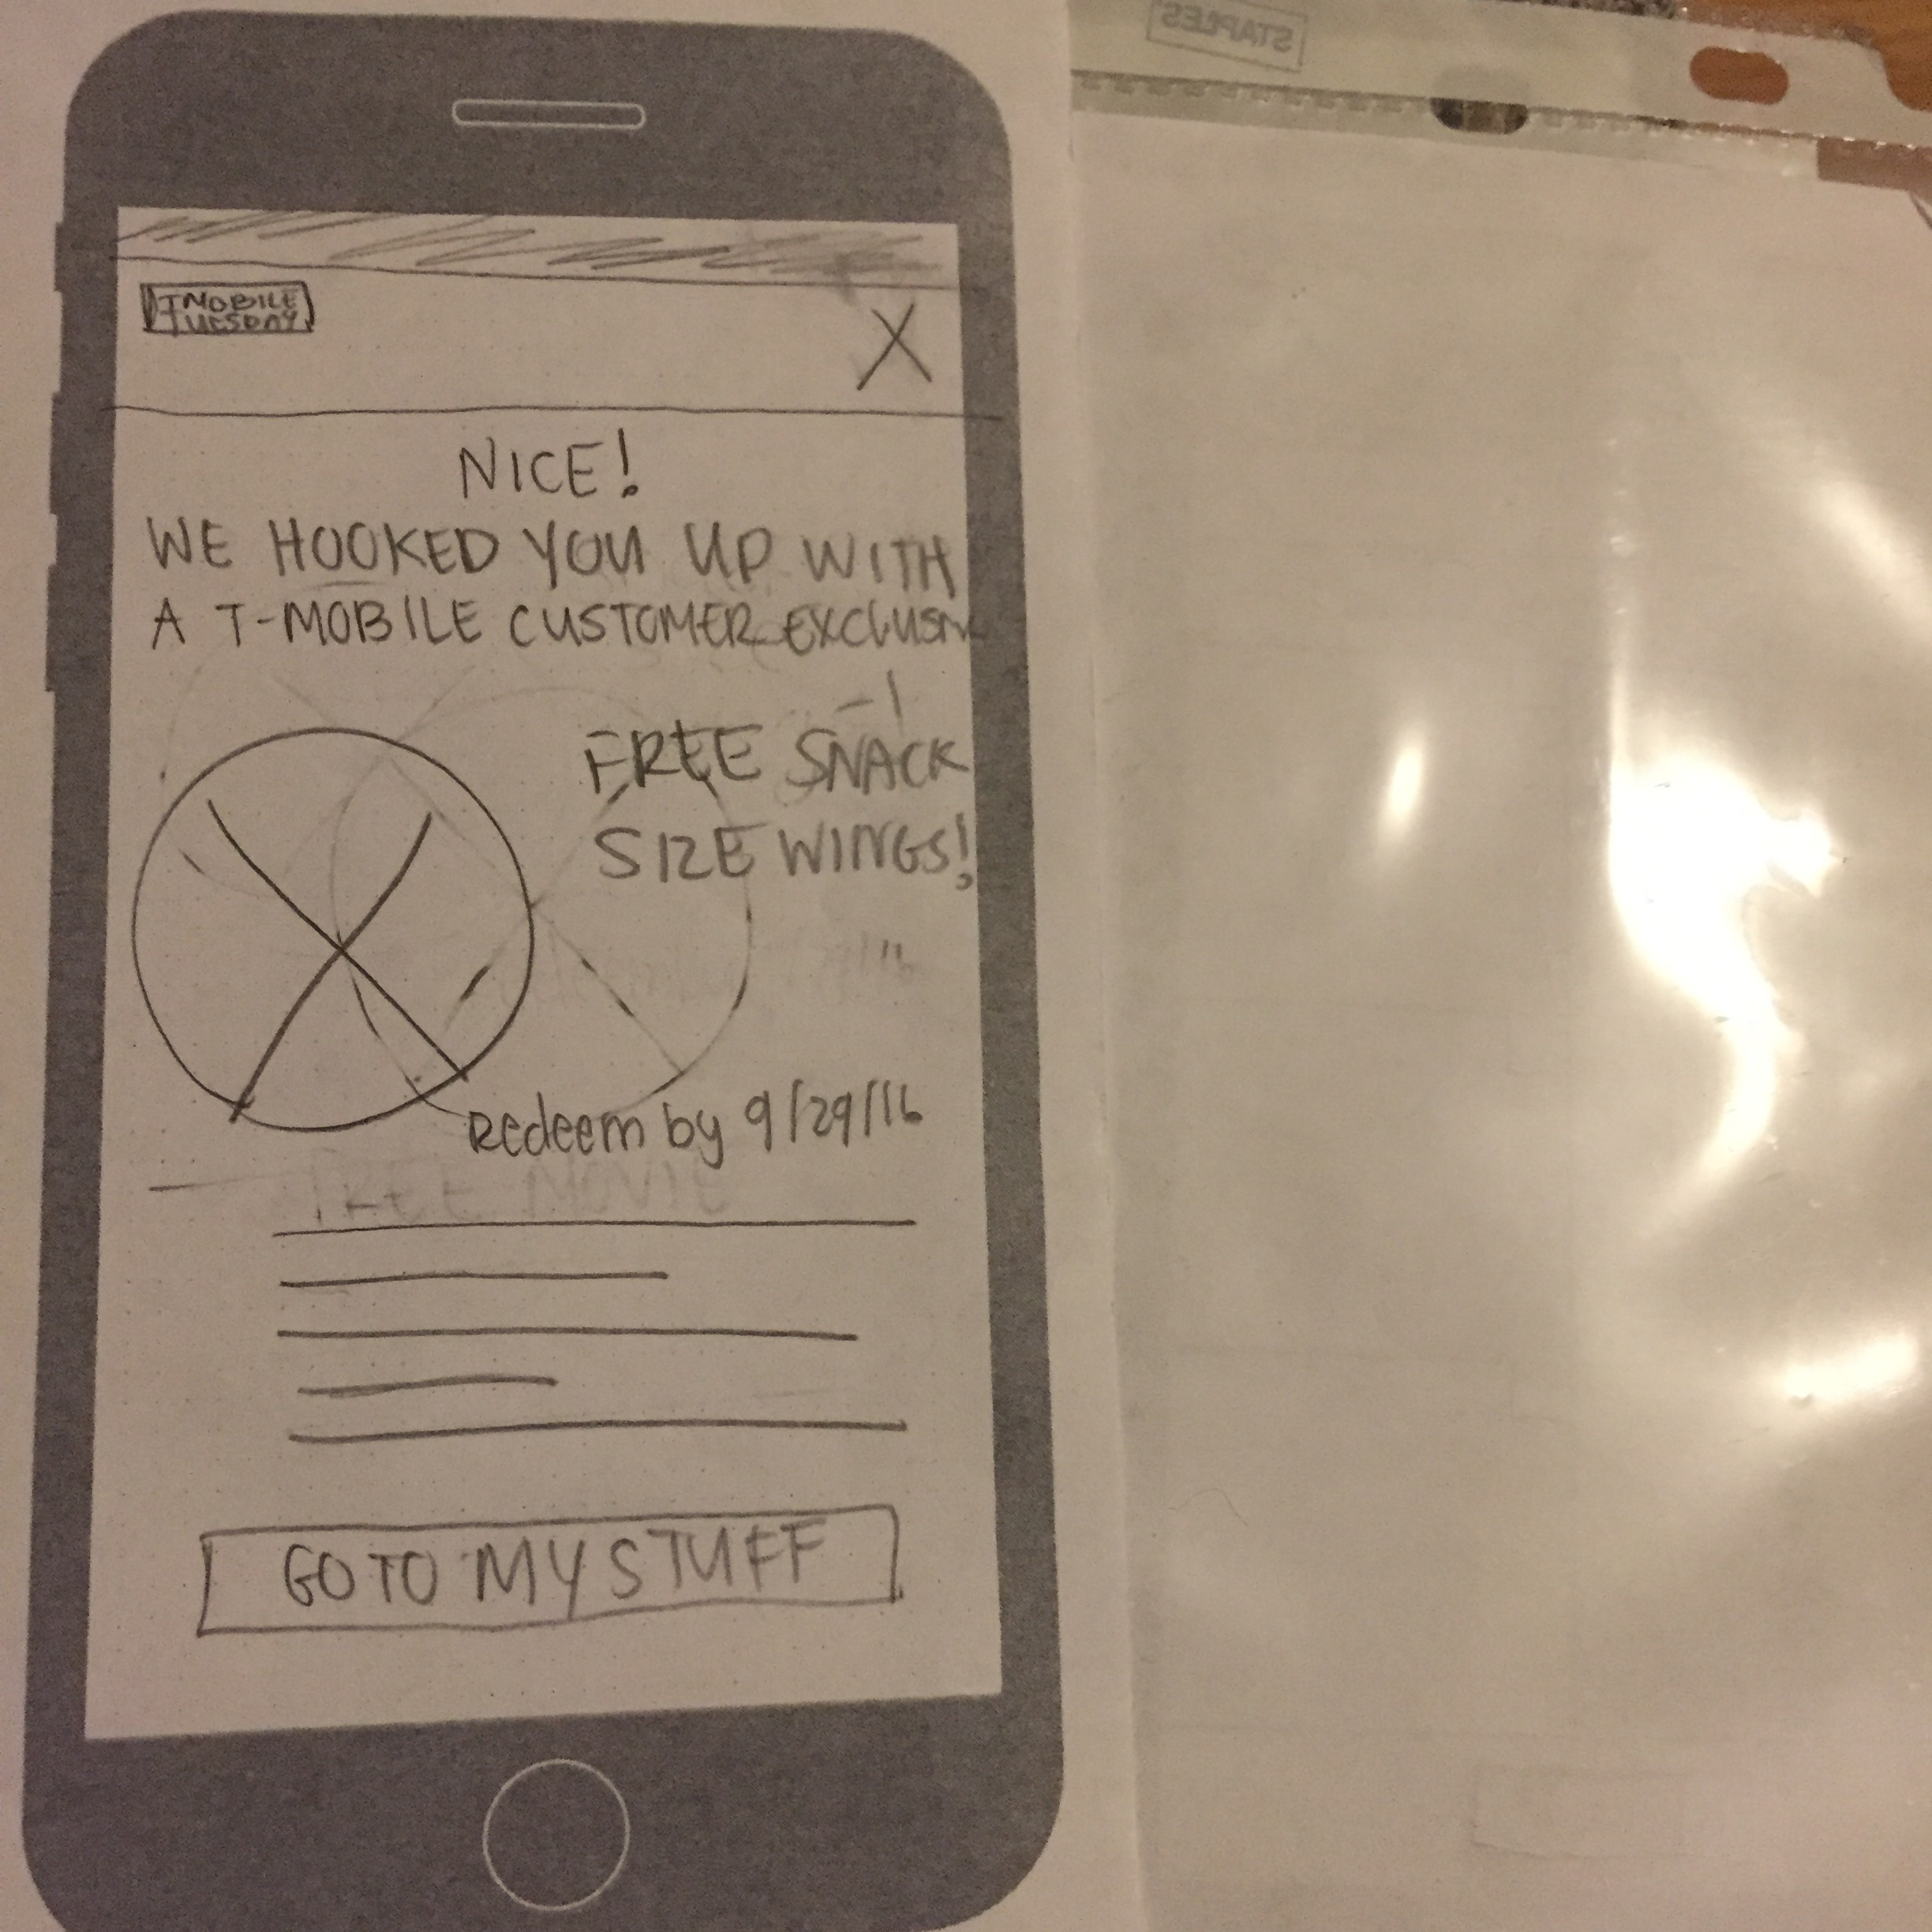 STAPLES
TMOBILE
TUESDAY
X
NICE!
WE HOOKED YOU UP WITH
A T-MOBILE CUSTOMER EXCLUSIV
FREE SNACK
SIZE WINGS!
Redeem by 9/29/16
FREE MOVIE
GO TO MY STUFF